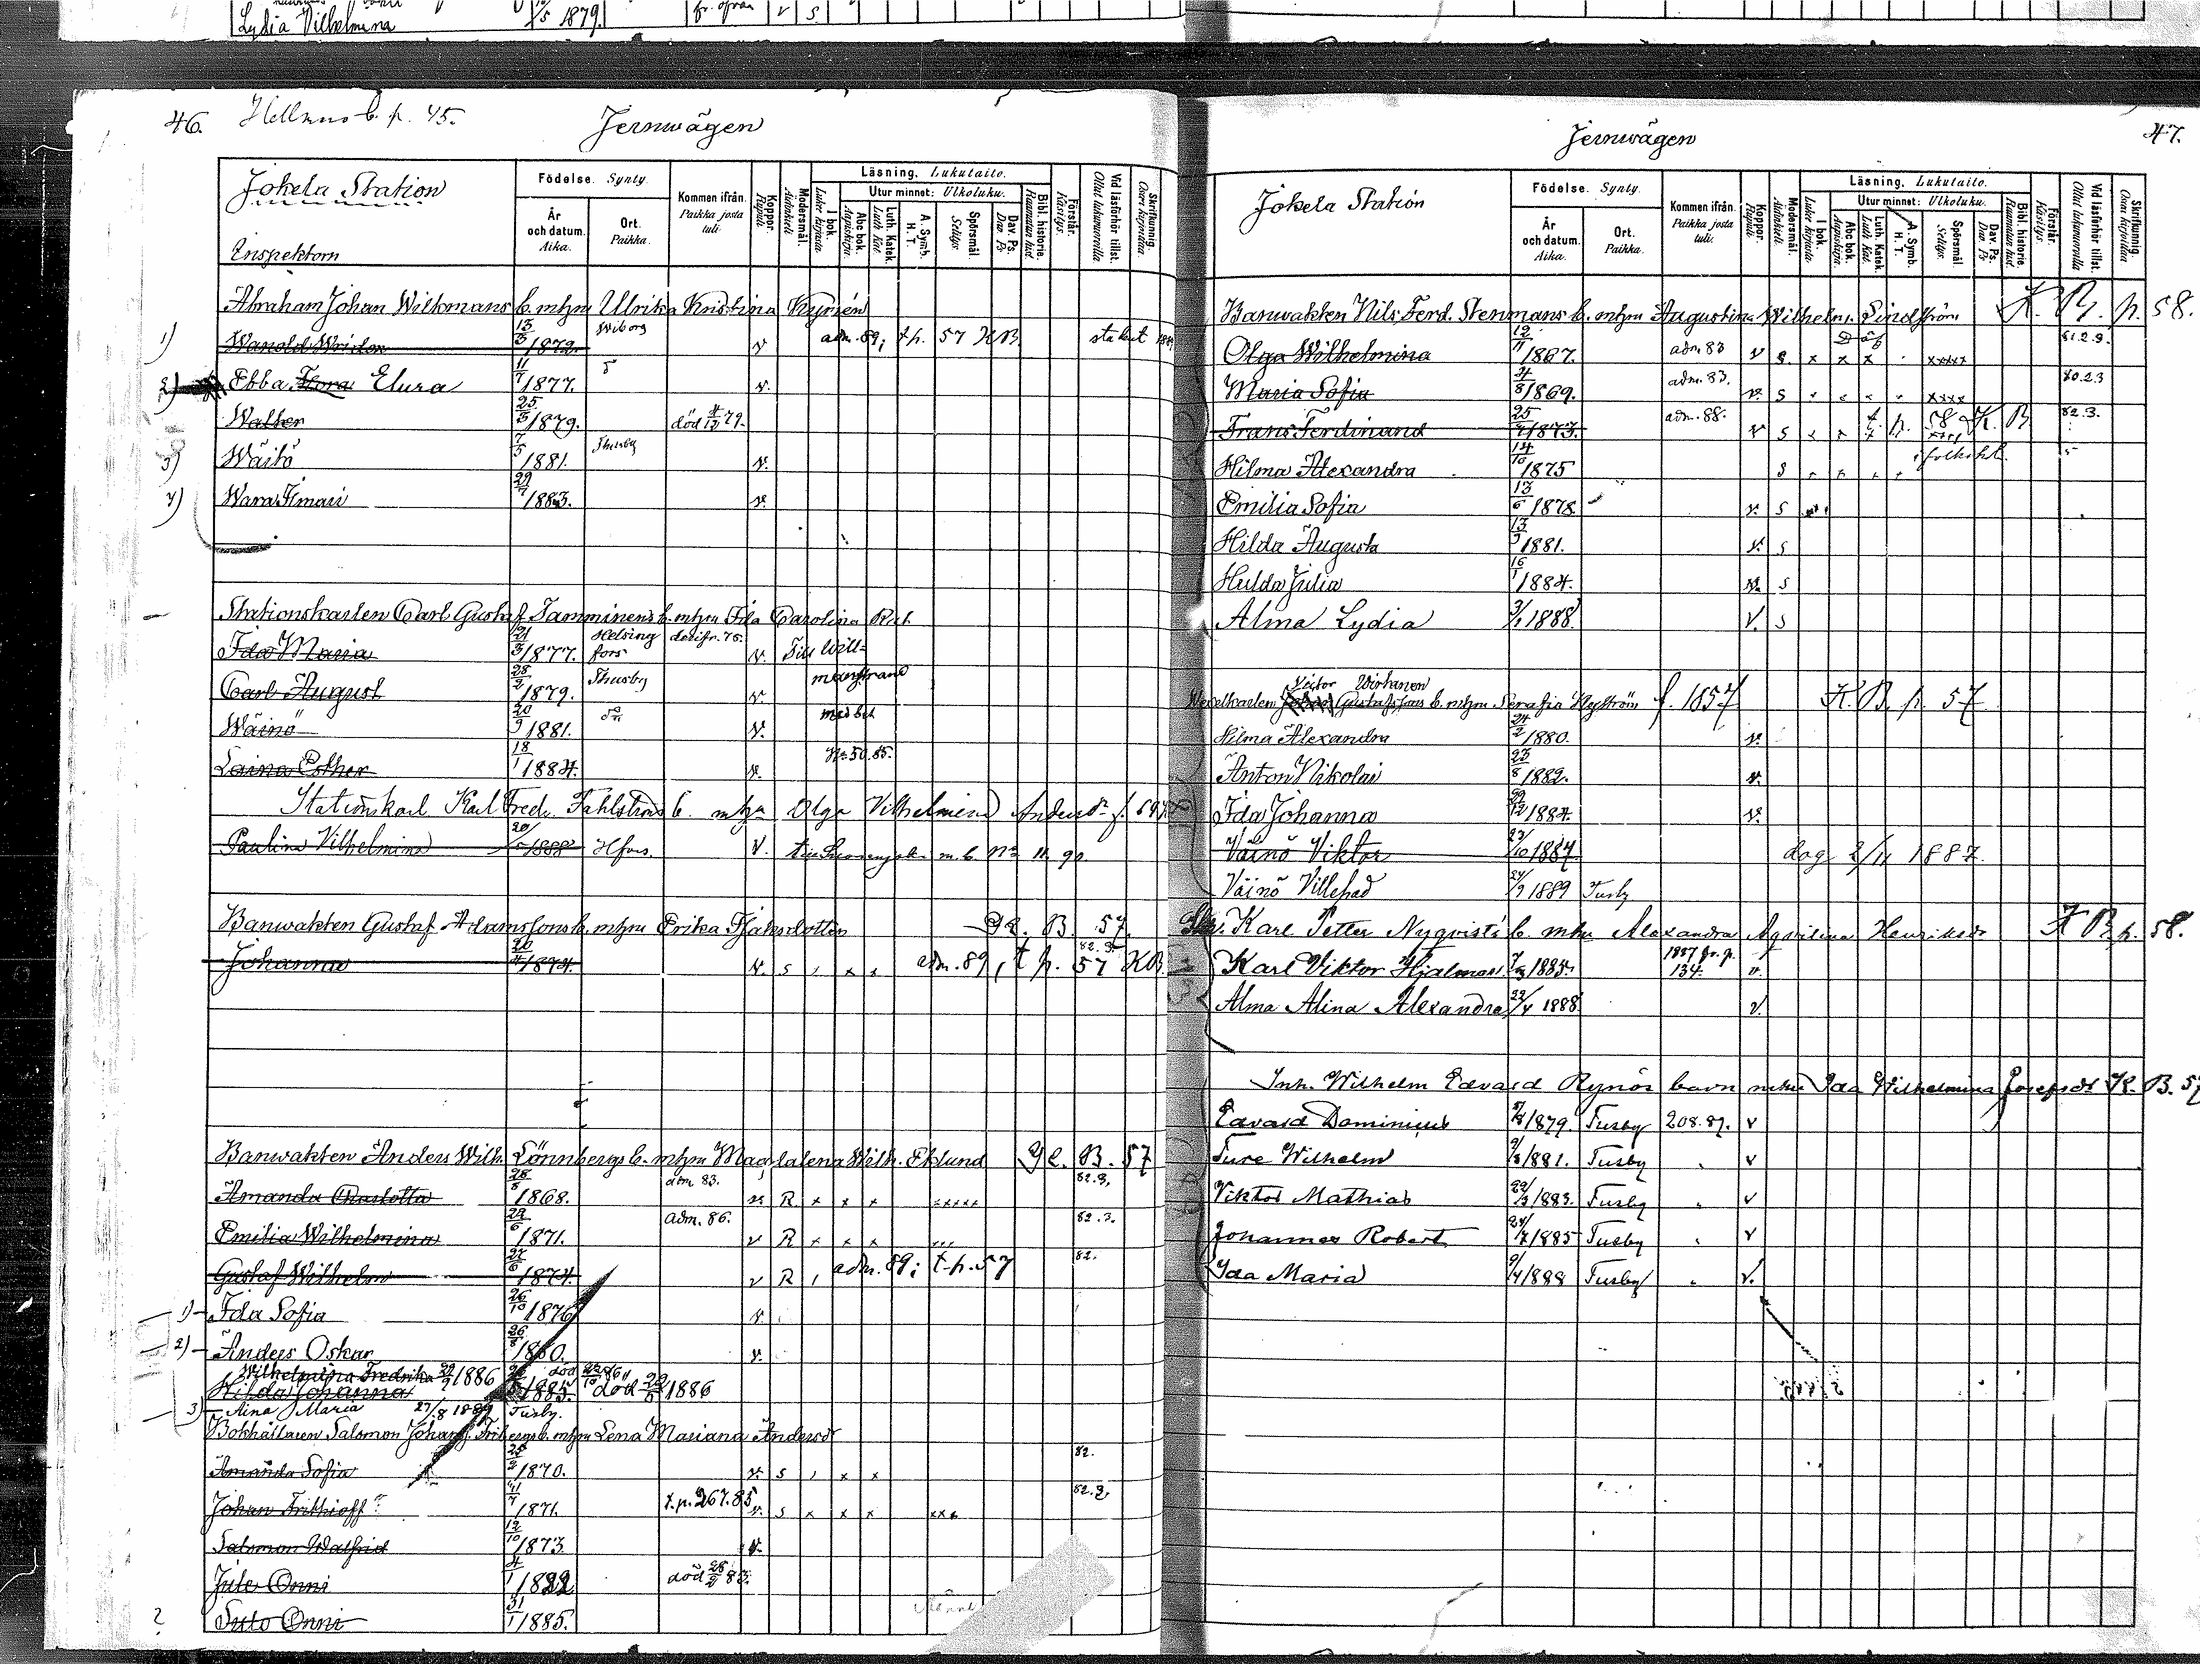 Lydia Vilhelmina /5 1879. fr. ofvan v s
46. Hellmans b. p. 45. Jernwägen
Jokela Station
Inspektorn
Födelse. Synty.
År och datum. Aika.
Ort. Paikka.
Kommen ifrån. Paikka josta tuli.
Koppor. Rupuli.
Modersmål. Äidinkieli.
Läsning. Lukutaito.
I bok. Luku kirjasta.
Utur minnet: Ulkoluku.
Abc bok. Aapiskirja.
Luth. Katek. Luth. Kat.
A. Symb. H. T.
Spörsmål. Selitys.
Dav. Ps. Dav. Ps.
Bibl. historie. Raamatun hist.
Förstår. Käsitys.
Vid läsförhör tillst. Ollut lukuvuorolla
Skrifkunnig. Osaa kirjoittaa.
Abraham Johan Wilkmans b. mhm Ulrika Kristina Kyrén
1) 13/3 1872. Wiborg v adm. 89; t.p. 57 KB
2) Ebba Flora Elvira 11/7 1877. v.
Walter 25/5 1879. död 79.
3) Wäinö 7/5 1881. Thusby v.
4) Wara Ilmari 29/7 1883. v.
Stationskarlen Carl Gustaf Tamminens b. mhm Ida Carolina
Ida Maria 21/3 1877. Helsingfors v. Till Will-
Carl August 28/2 1879. Thusby v. manstrand
Wäinö 20/9 1881. v. med bet
Laina Esther 18/1 1884. v. No 50. 85.
Stationskarl Karl Fred. Fahlströms b. mhm Olga Vilhelmina
Paulina Vilhelmina 20/5 1888 Hfors. V. m. b. No 11. 90
Banwakten Gustaf Adamssons b. mhm Erika Isaksdotter K. B. 57.
Johanna 20/4 1874. v. s adm. 89, t p. 57 KB. 82.3.
Banwakten Anders Wilh. Lönnbergs b. mhm Magdalena Wilh. Eklund K. B. 57
Amanda Charlotta 28/8 1868. adm. 83. v R x x x xxxxx 82.3.
Emilia Wilhelmina 22/6 1871. adm. 86. v R x x x 82.3.
Gustaf Wilhelm 27/6 1874. v R adm. 89; t.p. 57 82.
1) Ida Sofia 26/10 1876 v.
2) Anders Oskar 26/8 1880. v.
Wilhelmina Fredrika 29/9 1886 död
Hilda Johanna 1885. död 22/5 1886
3) Aina Maria 27/8 1889 Tusby.
Bokhållaren Salomon Johan Fribergs b. mhm Lena Mariana Andersdr
Amanda Sofia 25/2 1870. v. s x x 82.
Johan Frithioff 11/7 1871. t.p. 267. 85 v. s x x x xxx 82.3.
Salomon Walfrid 12/10 1873. v.
Jule Onni 4/1 1882 död 28/2 83.
Tuto Onni 31/1 1885.
Jernwägen 47.
Jokela Station
Födelse. Synty.
År och datum. Aika.
Ort. Paikka.
Kommen ifrån. Paikka josta tuli.
Koppor. Rupuli.
Modersmål. Äidinkieli.
Läsning. Lukutaito.
I bok. Luku kirjasta.
Utur minnet: Ulkoluku.
Abc bok. Aapiskirja.
Luth. Katek. Luth. Kat.
A. Symb. H. T.
Spörsmål. Selitys.
Dav. Ps. Dav. Ps.
Bibl. historie. Raamatun hist.
Förstår. Käsitys.
Vid läsförhör tillst. Ollut lukuvuorolla
Skrifkunnig. Osaa kirjoittaa.
Banwakten Nils Ferd. Stenmans b. mhm Augustina Wilhelm. Lindström K. B. p. 58.
Olga Wilhelmina 12/11 1867. adm. 83 v s. x x x xxxx 81.2.3.
Maria Sofia 4/8 1869. adm. 83. v. s xxxx 80.2.3
Frans Ferdinand 25/7 1873. adm. 88. v s x x t. p. 58 K. B 82.3.
Hilma Alexandra 14/10 1875 s i folkskl.
Emilia Sofia 13/6 1878 v. s
Hilda Augusta 13/3 1881. v. s
Hulda Julia 16/1 1884. v. s
Alma Lydia 3/1 1888. V. s
Wexelkarlen Victor Wirtanen Gustafssons b. mhm Serafia Nyström f. 1857 K. B. p. 57
Hilma Alexandra 24/2 1880. v.
Anton Nikolai 23/8 1882. v.
Ida Johanna 29/12 1884. v.
Väinö Viktor 23/10 1887 dog 2/11 1887.
Väinö Villehad 24/9 1889 Tusby
Karl Petter Nyqvists b. mhm Alexandra Aqvilina Henriksdr K B p. 58.
Karl Viktor Hjalmar 1885. 1887 fr. p. 134. v.
Alma Alina Alexandra 22/4 1888 V.
Inh. Wilhelm Edvard Rynös barn mhm Ida Wilhelmina Josefsdr K. B. 57
Edvard Dominicus 1879. Tusby 208. 87. v
Ture Wilhelm 9/8 1881. Tusby v
Viktor Mathias 22/3 1883. Tusby v
Johannes Robert 24/7 1885 Tusby v
Ida Maria 9/4 1888 Tusby v.